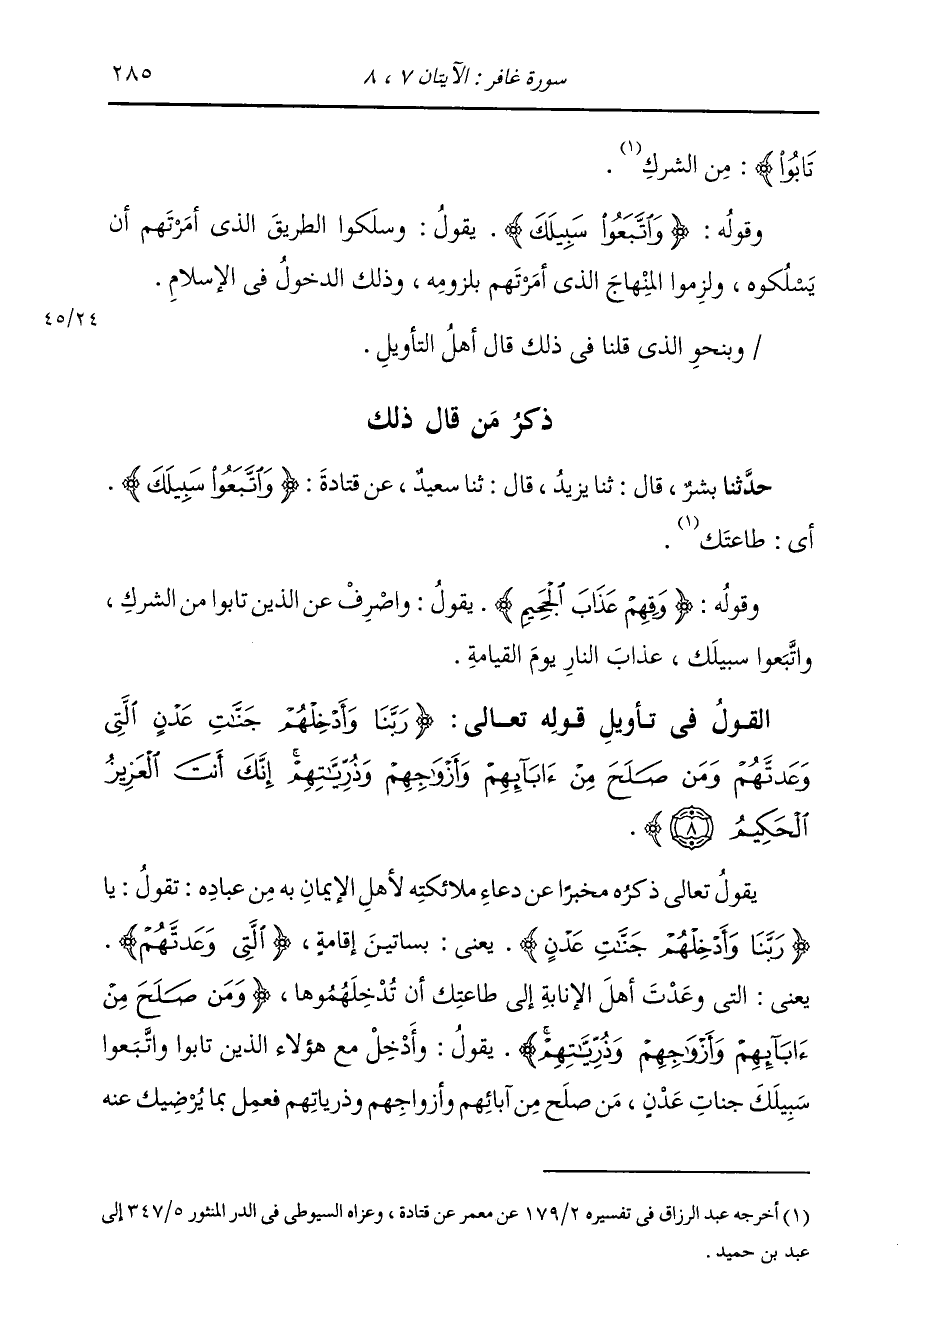 سورة غافر : الآيتان ٧ ، ٨
٢٨٥
تَابُوا۟ ﴾ : مِن الشركِ(١) .
وقولُه : ﴿ وَٱتَّبَعُوا۟ سَبِيلَكَ ﴾ . يقولُ : وسلَكوا الطريقَ الذى أمَرْتَهم أن
يَسْلُكوه ، ولزِموا المنْهاجَ الذى أمَرْتَهم بلزومِه ، وذلك الدخولُ فى الإسلامِ .
٤٥/٢٤
/ وبنحوِ الذى قلنا فى ذلك قال أهلُ التأويلِ .
ذكرُ مَن قال ذلك
حدَّثنا بشرٌ ، قال : ثنا يزيدُ ، قال : ثنا سعيدٌ ، عن قتادةَ : ﴿ وَٱتَّبَعُوا۟ سَبِيلَكَ ﴾ .
أى : طاعتَك(١) .
وقولُه : ﴿ وَقِهِمْ عَذَابَ ٱلْجَحِيمِ ﴾ . يقولُ : واصْرِفْ عن الذين تابوا من الشركِ ،
واتَّبَعوا سبيلَك ، عذابَ النارِ يومَ القيامةِ .
القولُ فى تأويلِ قولِه تعالى : ﴿ رَبَّنَا وَأَدْخِلْهُمْ جَنَّٰتِ عَدْنٍ ٱلَّتِى
وَعَدتَّهُمْ وَمَن صَلَحَ مِنْ ءَابَآئِهِمْ وَأَزْوَٰجِهِمْ وَذُرِّيَّٰتِهِمْ ۚ إِنَّكَ أَنتَ ٱلْعَزِيزُ
ٱلْحَكِيمُ ٨ ﴾ .
يقولُ تعالى ذكرُه مخبرًا عن دعاءِ ملائكتِه لأهلِ الإيمانِ به مِن عبادِه : تقولُ : يا
﴿ رَبَّنَا وَأَدْخِلْهُمْ جَنَّٰتِ عَدْنٍ ﴾ . يعنى : بساتينَ إقامةٍ ، ﴿ ٱلَّتِى وَعَدتَّهُمْ ﴾ .
يعنى : التى وعَدْتَ أهلَ الإنابةِ إلى طاعتِك أن تُدْخِلَهُمُوها ، ﴿ وَمَن صَلَحَ مِنْ
ءَابَآئِهِمْ وَأَزْوَٰجِهِمْ وَذُرِّيَّٰتِهِمْ ۚ ﴾ . يقولُ : وأَدْخِلْ مع هؤلاء الذين تابوا واتَّبَعوا
سَبِيلَكَ جناتِ عَدْنٍ ، مَن صلَح مِن آبائِهم وأزواجِهم وذرياتِهم فعمِل بما يُرْضِيك عنه
(١) أخرجه عبد الرزاق فى تفسيره ١٧٩/٢ عن معمر عن قتادة ، وعزاه السيوطى فى الدر المنثور ٣٤٧/٥ إلى
عبد بن حميد .